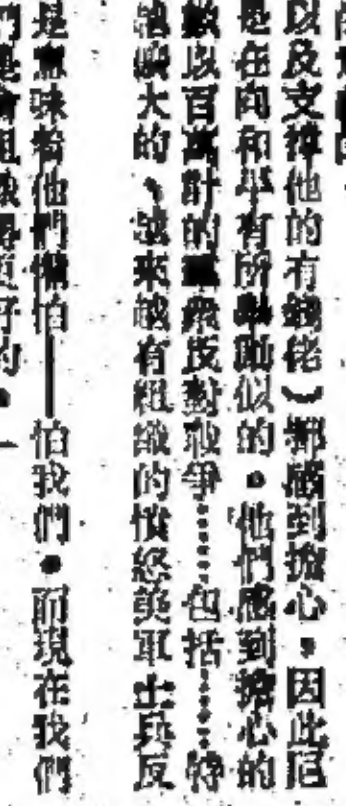 以及支撐他的有錢佬）都感到擔心，因此尼
是在向和平有所幫助似的。他們感到擔心的
數以百萬計的羣衆反對戰爭……包括……特
越廣大的、越來越有組織的憤怒美軍士兵反
是意味着他們懼怕——怕我們。而現在我們